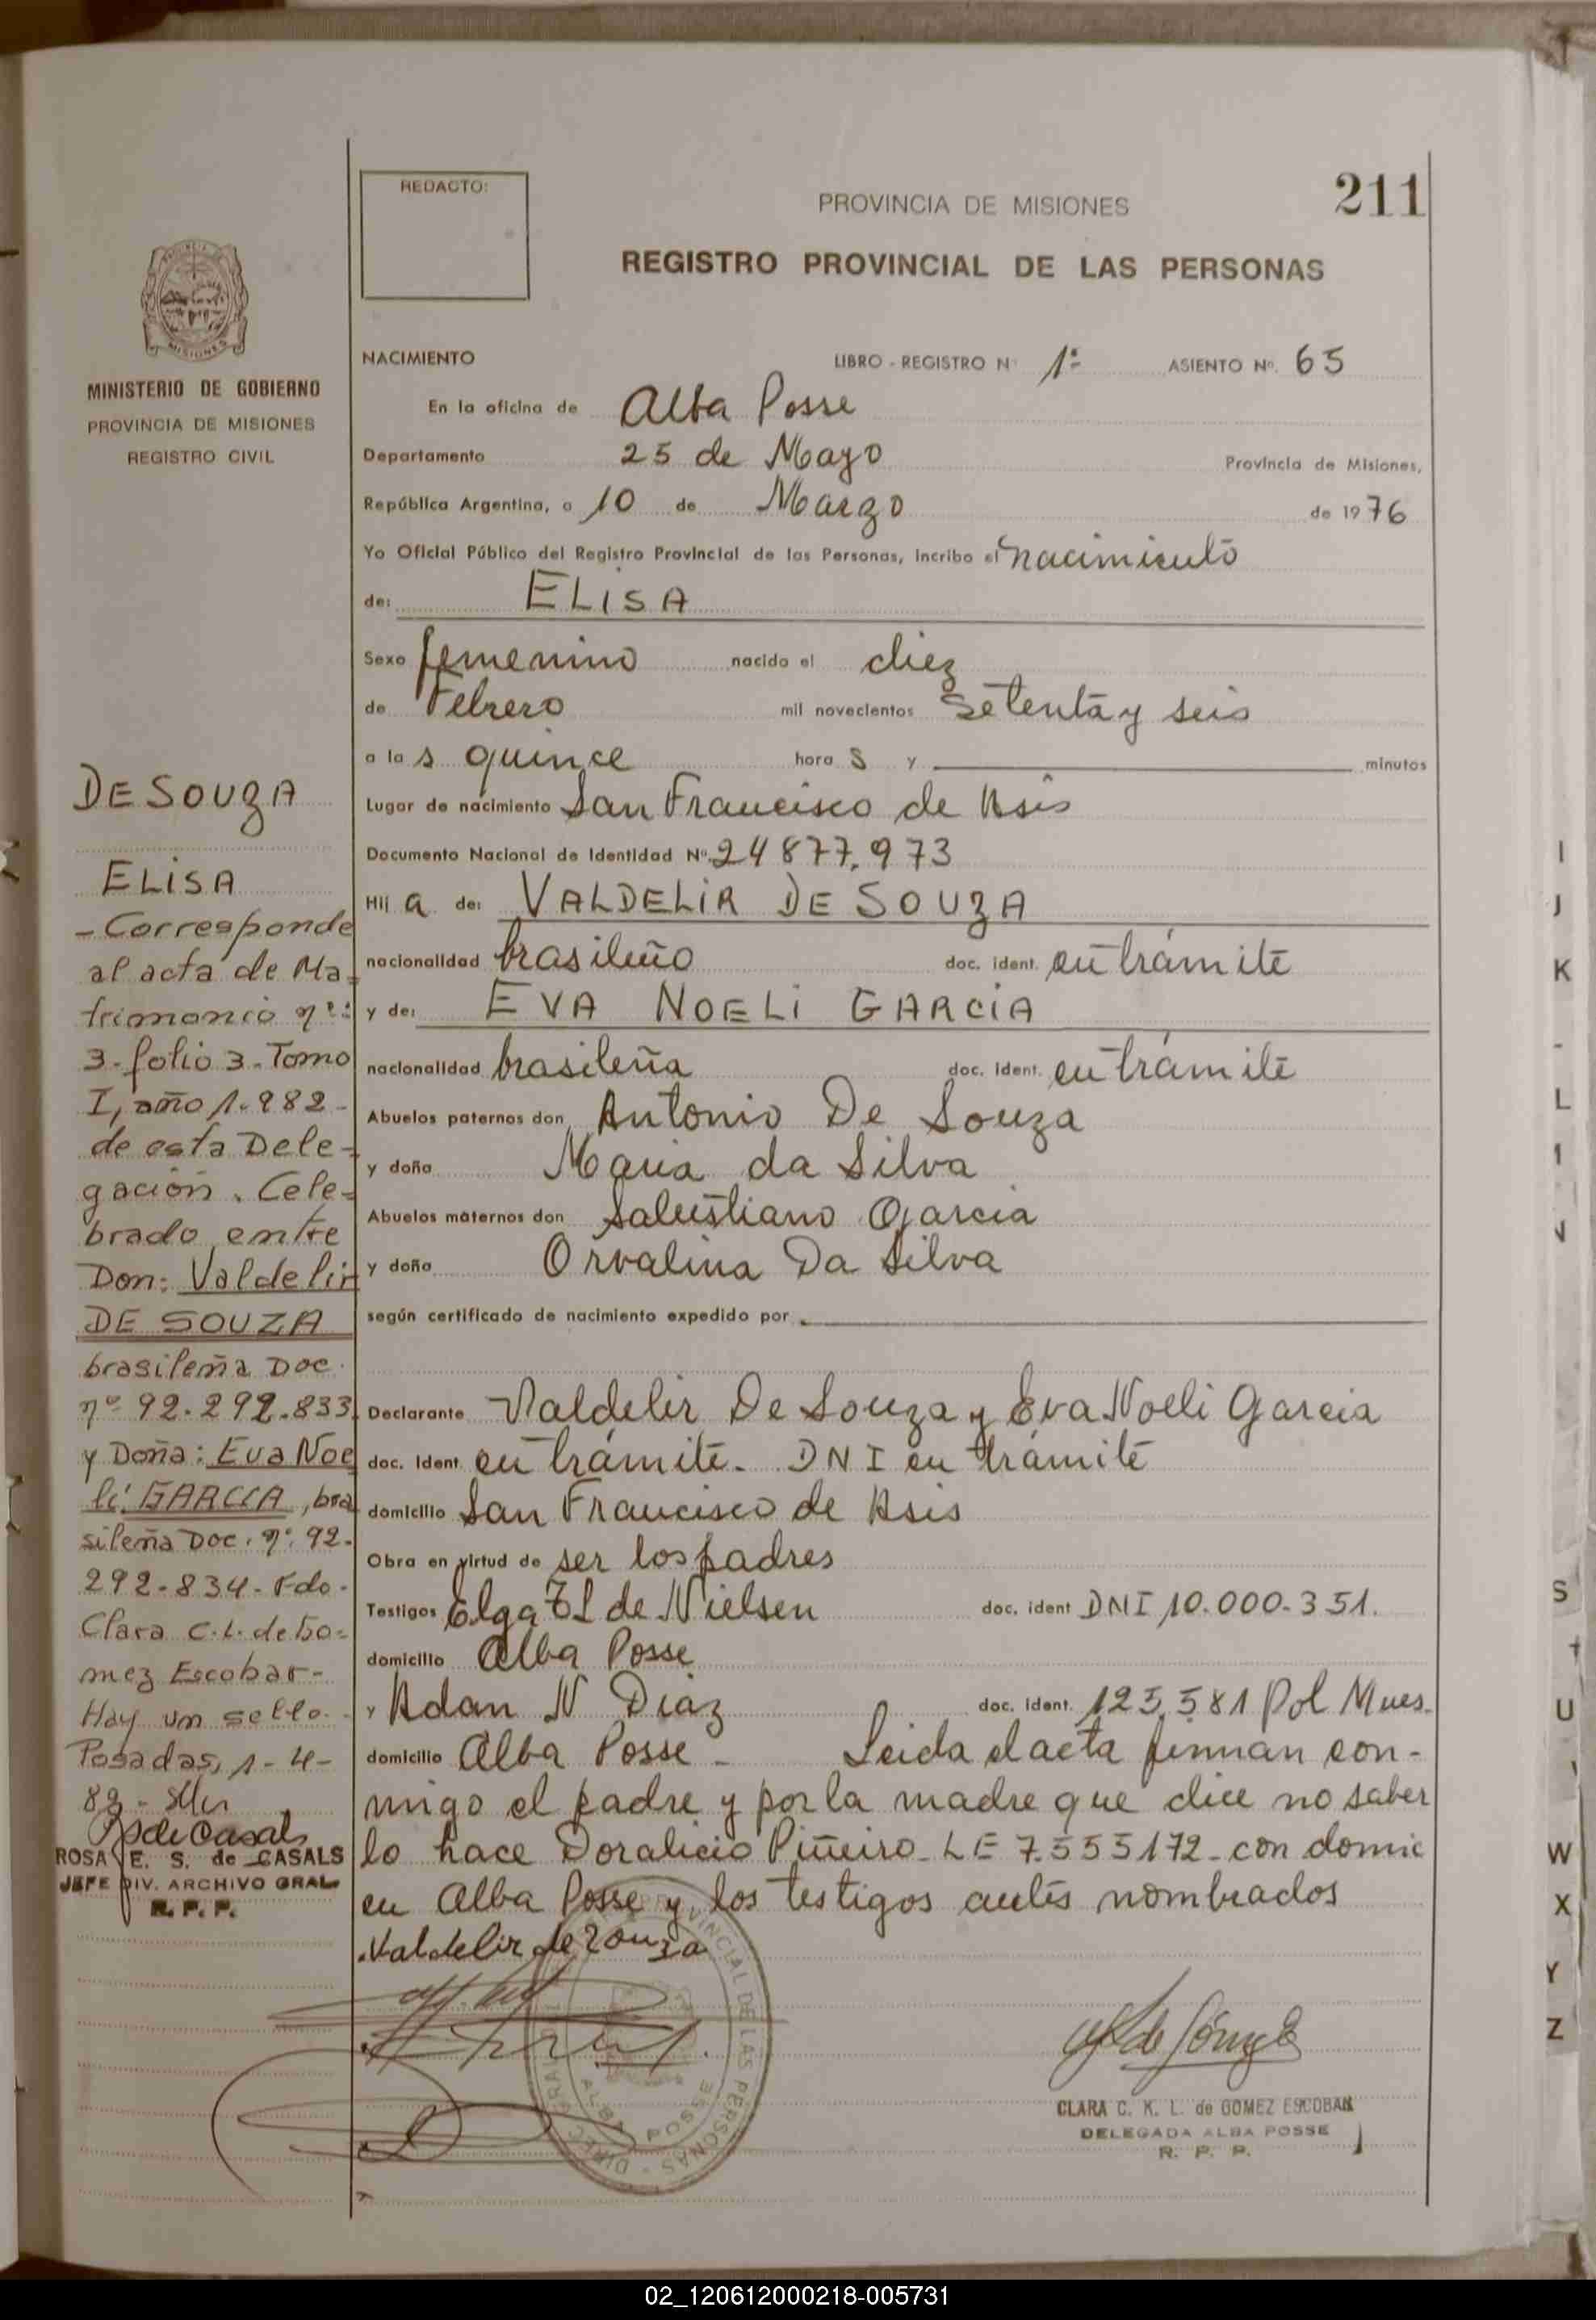 REDACTO:
PROVINCIA DE MISIONES
211
REGISTRO PROVINCIAL DE LAS PERSONAS
MISIONES
MINISTERIO DE GOBIERNO
PROVINCIA DE MISIONES
REGISTRO CIVIL
NACIMIENTO LIBRO - REGISTRO Nº 1º ASIENTO Nº. 65
En la oficina de Alba Posse
Departamento 25 de Mayo Provincia de Misiones,
República Argentina, a 10 de Marzo de 1976
Yo Oficial Público del Registro Provincial de las Personas, incribo el nacimiento
de: ELISA
Sexo femenino nacido el diez
de Febrero mil novecientos setenta y seis
a las quince horas y minutos
Lugar de nacimiento San Francisco de Asis
Documento Nacional de Identidad Nº 24877.973
Hija de: VALDELIR DE SOUZA
nacionalidad brasileño doc. ident. en trámite
y de: EVA NOELI GARCIA
nacionalidad brasileña doc. ident. en trámite
Abuelos paternos don Antonio De Souza
y doña Maria da Silva
Abuelos maternos don Salustiano Garcia
y doña Orvalina Da Silva
según certificado de nacimiento expedido por
Declarante Valdelir De Souza y Eva Noeli Garcia
doc. ident en trámite. DNI en trámite
domicilio San Francisco de Asis
Obra en virtud de ser los padres
Testigos Elga de Nielsen doc. ident DNI 10.000.351.
domicilio Alba Posse
y Adan N Diaz doc. ident. 123.581 Pol Mnes.
domicilio Alba Posse - Leida el acta firman con-
migo el padre y por la madre que dice no saber
lo hace Doralicio Piñeiro - LE 7.555172 - con domic
en Alba Posse y los testigos antes nombrados
Valdelir de Zouza
DE SOUZA
ELISA
- Corresponde
al acta de Ma-
trimonio nº:
3- folio 3- Tomo
I, año 1.982-
de esta Dele-
gación. Cele-
brado entre
Don: Valdelir
DE SOUZA
brasileña Doc.
nº 92.292.833
y Doña: Eva Noe
li GARCIA, bra
sileña Doc. nº. 92.
292.834- Fdo.
Clara C.L. de Go-
mez Escobar-
Hay un sello.
Posadas, 1-4-
82-
R de Casals
ROSA E. S. de CASALS
JEFE DIV. ARCHIVO GRAL.
R. P. P.
PROVINCIAL DE LAS PERSONAS
ALBA POSSE
CLARA C. K. L. de GOMEZ ESCOBAR
DELEGADA ALBA POSSE
R. P. P.
I
J
K
L
S
U
W
X
Y
Z
02_120612000218-005731